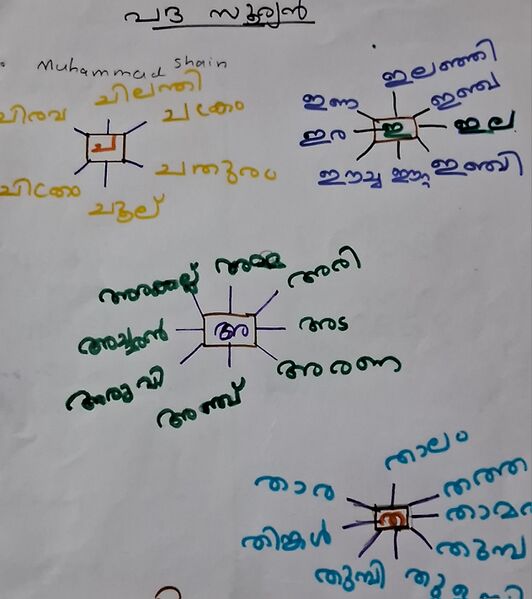 പദ സൂര്യൻ
Muhammad Shain
ചിലന്തി
ചിരവ
ചക്രം
ച
ചതുരം
ചൂല്
ഇലഞ്ഞി
ഇണ
ഇഞ്ച
ഇര
ഇ
ഇല
ഈച്ച
ഈറ്റ
ഇഞ്ചി
അമ്മ
അരി
അച്ഛൻ
അ
അട
അരുവി
അഞ്ച്
അരണ
താലം
താര
തത്ത
ത
താമര
തിങ്കൾ
തുമ്പ
തുമ്പി